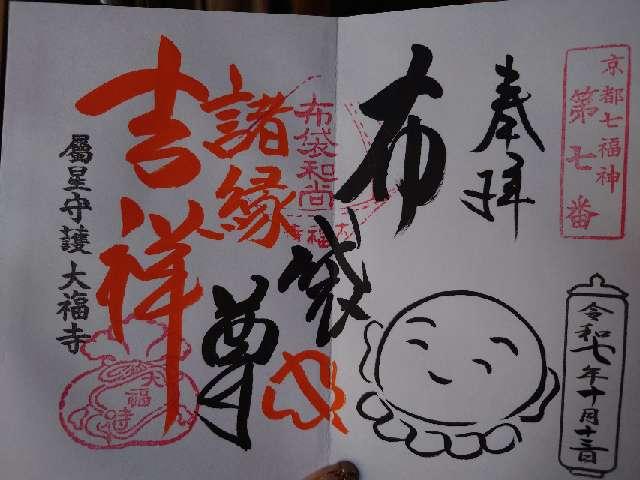 京都七福神
第七番
奉拝
令和七年十月十三日
布袋尊
布袋和尚
諸縁
吉祥
屬星守護大福寺
大福寺